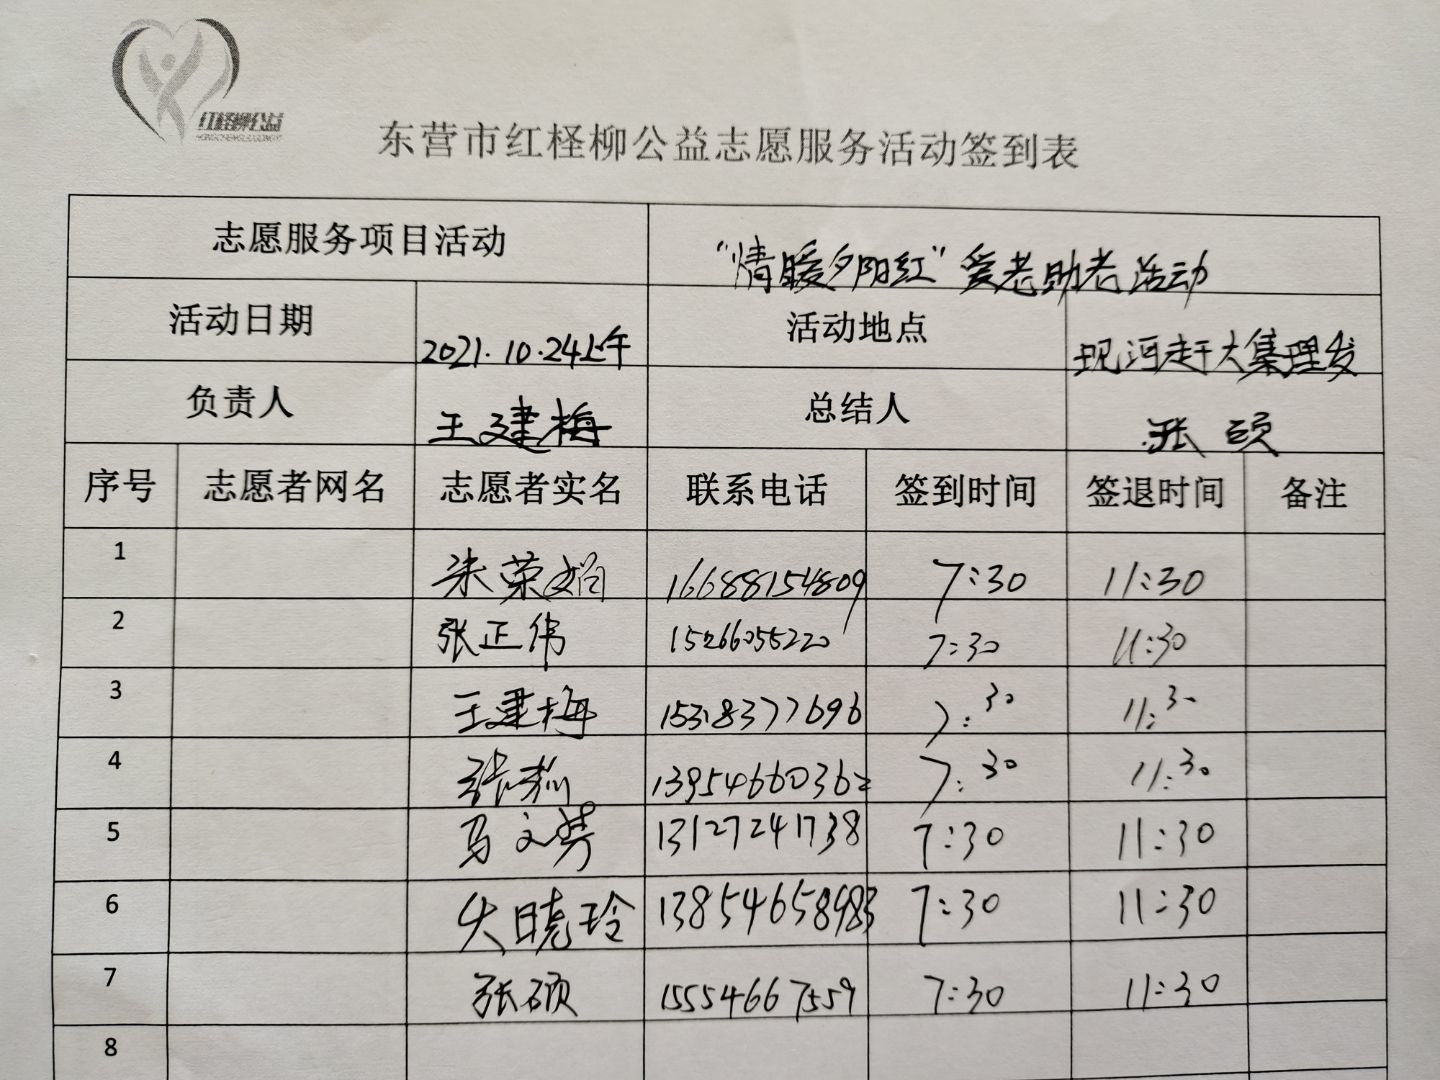 红柽柳公益
东营市红柽柳公益志愿服务活动签到表
志愿服务项目活动 "情暖夕阳红"爱老助老活动
活动日期 2021.10.24上午 活动地点 现河赶大集理发
负责人 王建梅 总结人 张硕
序号 志愿者网名 志愿者实名 联系电话 签到时间 签退时间 备注
1 朱荣娟 16688154809 7:30 11:30
2 张正伟 15266055220 7:30 11:30
3 王建梅 15318377696 7:30 11:30
4 张莉 13954660362 7:30 11:30
5 马文 13127241738 7:30 11:30
6 晓玲 13854658983 7:30 11:30
7 张硕 15554667559 7:30 11:30
8